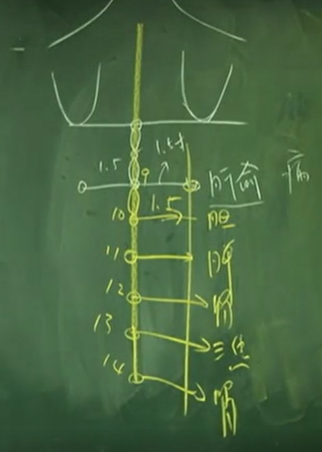 1.5 1.5寸
9 肝俞
10 1.5 胆
11 脾
12 胃
13 三焦
14